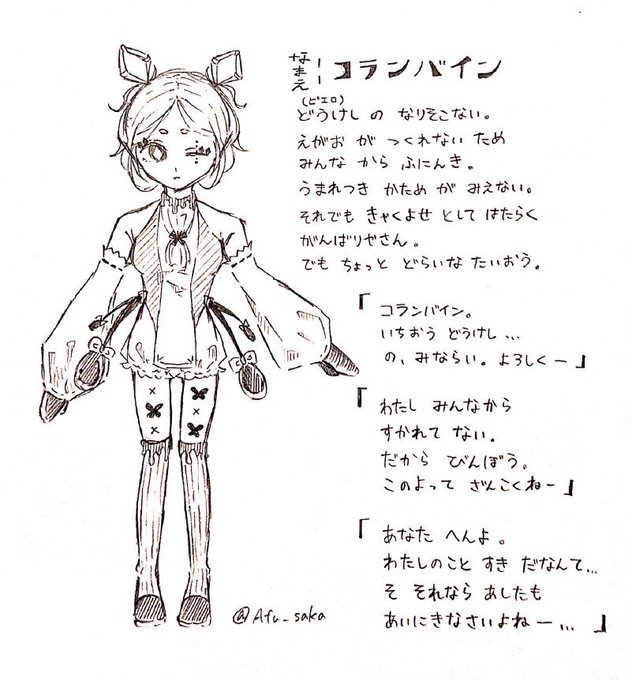 なまえ -- コランバイン
(ピエロ)
どうけし の なりそこない。
えがお が つくれない ため
みんな から ふにんき。
うまれつき かため が みえない。
それでも きゃくよせ として はたらく
がんばりやさん。
でも ちょっと どらいな たいおう。
「 コランバイン。
いちおう どうけし...
の、みならい。よろしくー 」
「 わたし みんなから
すかれて ない。
だから びんぼう。
このよって ざんこくねー 」
「 あなた へんよ。
わたしのこと すき だなんて...
そ それなら あしたも
あいにきなさいよねー... 」
@Afu_saka